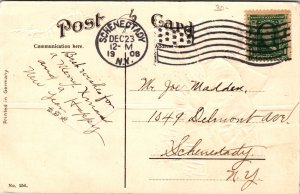 30-
Post Card
Communication here.
SCHENECTADY
DEC 23
12-M
1908
N.Y.
Best wishes for
a Merry Xmas
and a Happy
New Year
Mr. Joe Madden
1049 Delmont Ave.
Schenectady
N.Y.
Printed in Germany
No. 256.